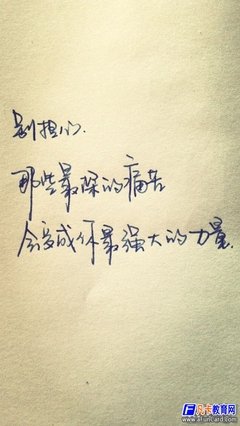 别担心.
那些最深的痛苦
会变成你最强大的力量.
凡卡教育网
www.3FunCard.com